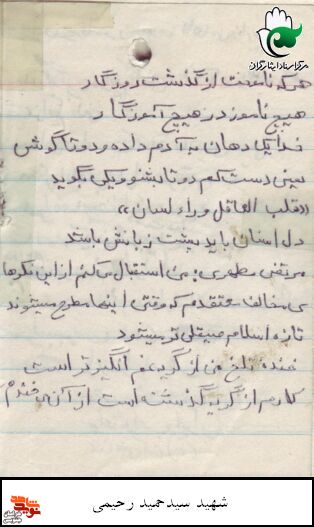 مرکز اسناد ایثارگران
هرکه نامخت از گذشت روزگار
هیچ ناموزد ز هیچ آموزگار
خدا یک دهان به آدم داده و دو تا گوش
یعنی دست کم دو تا بشنو و یکی بگوید
«قلب العاقل وراء لسان»
دل انسان باید پشت زبانش باشد
مرتضی مطهری: من استقبال می‌کنم از این فکرهای
مخالف معتقدم که وقتی اینها مطرح میشوند
تازه اسلام صیقلی تر میشود
خنده تلخ من از گریه غم انگیزتر است
کارم از گریه گذشته است از آن می‌خندم
شهید سیدحمید رحیمی